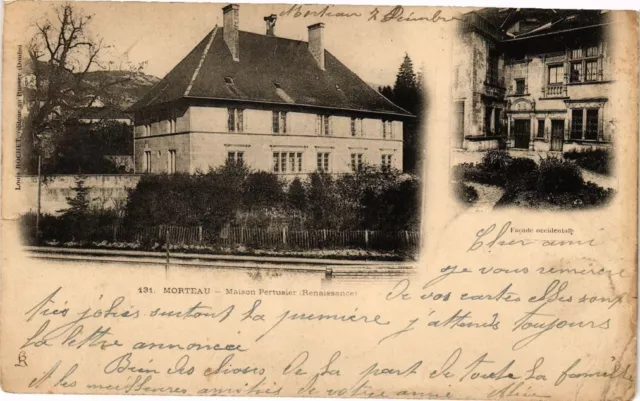 Morteau 7 Décembre
Façade occidentale
131. MORTEAU – Maison Pertusier (Renaissance)
Cher ami
je vous remercie
de vos cartes elles sont
très jolies surtout la première j'attends toujours
la lettre annoncée
Bien des choses de la part de toute la famille
et les meilleures amitiés de votre amie